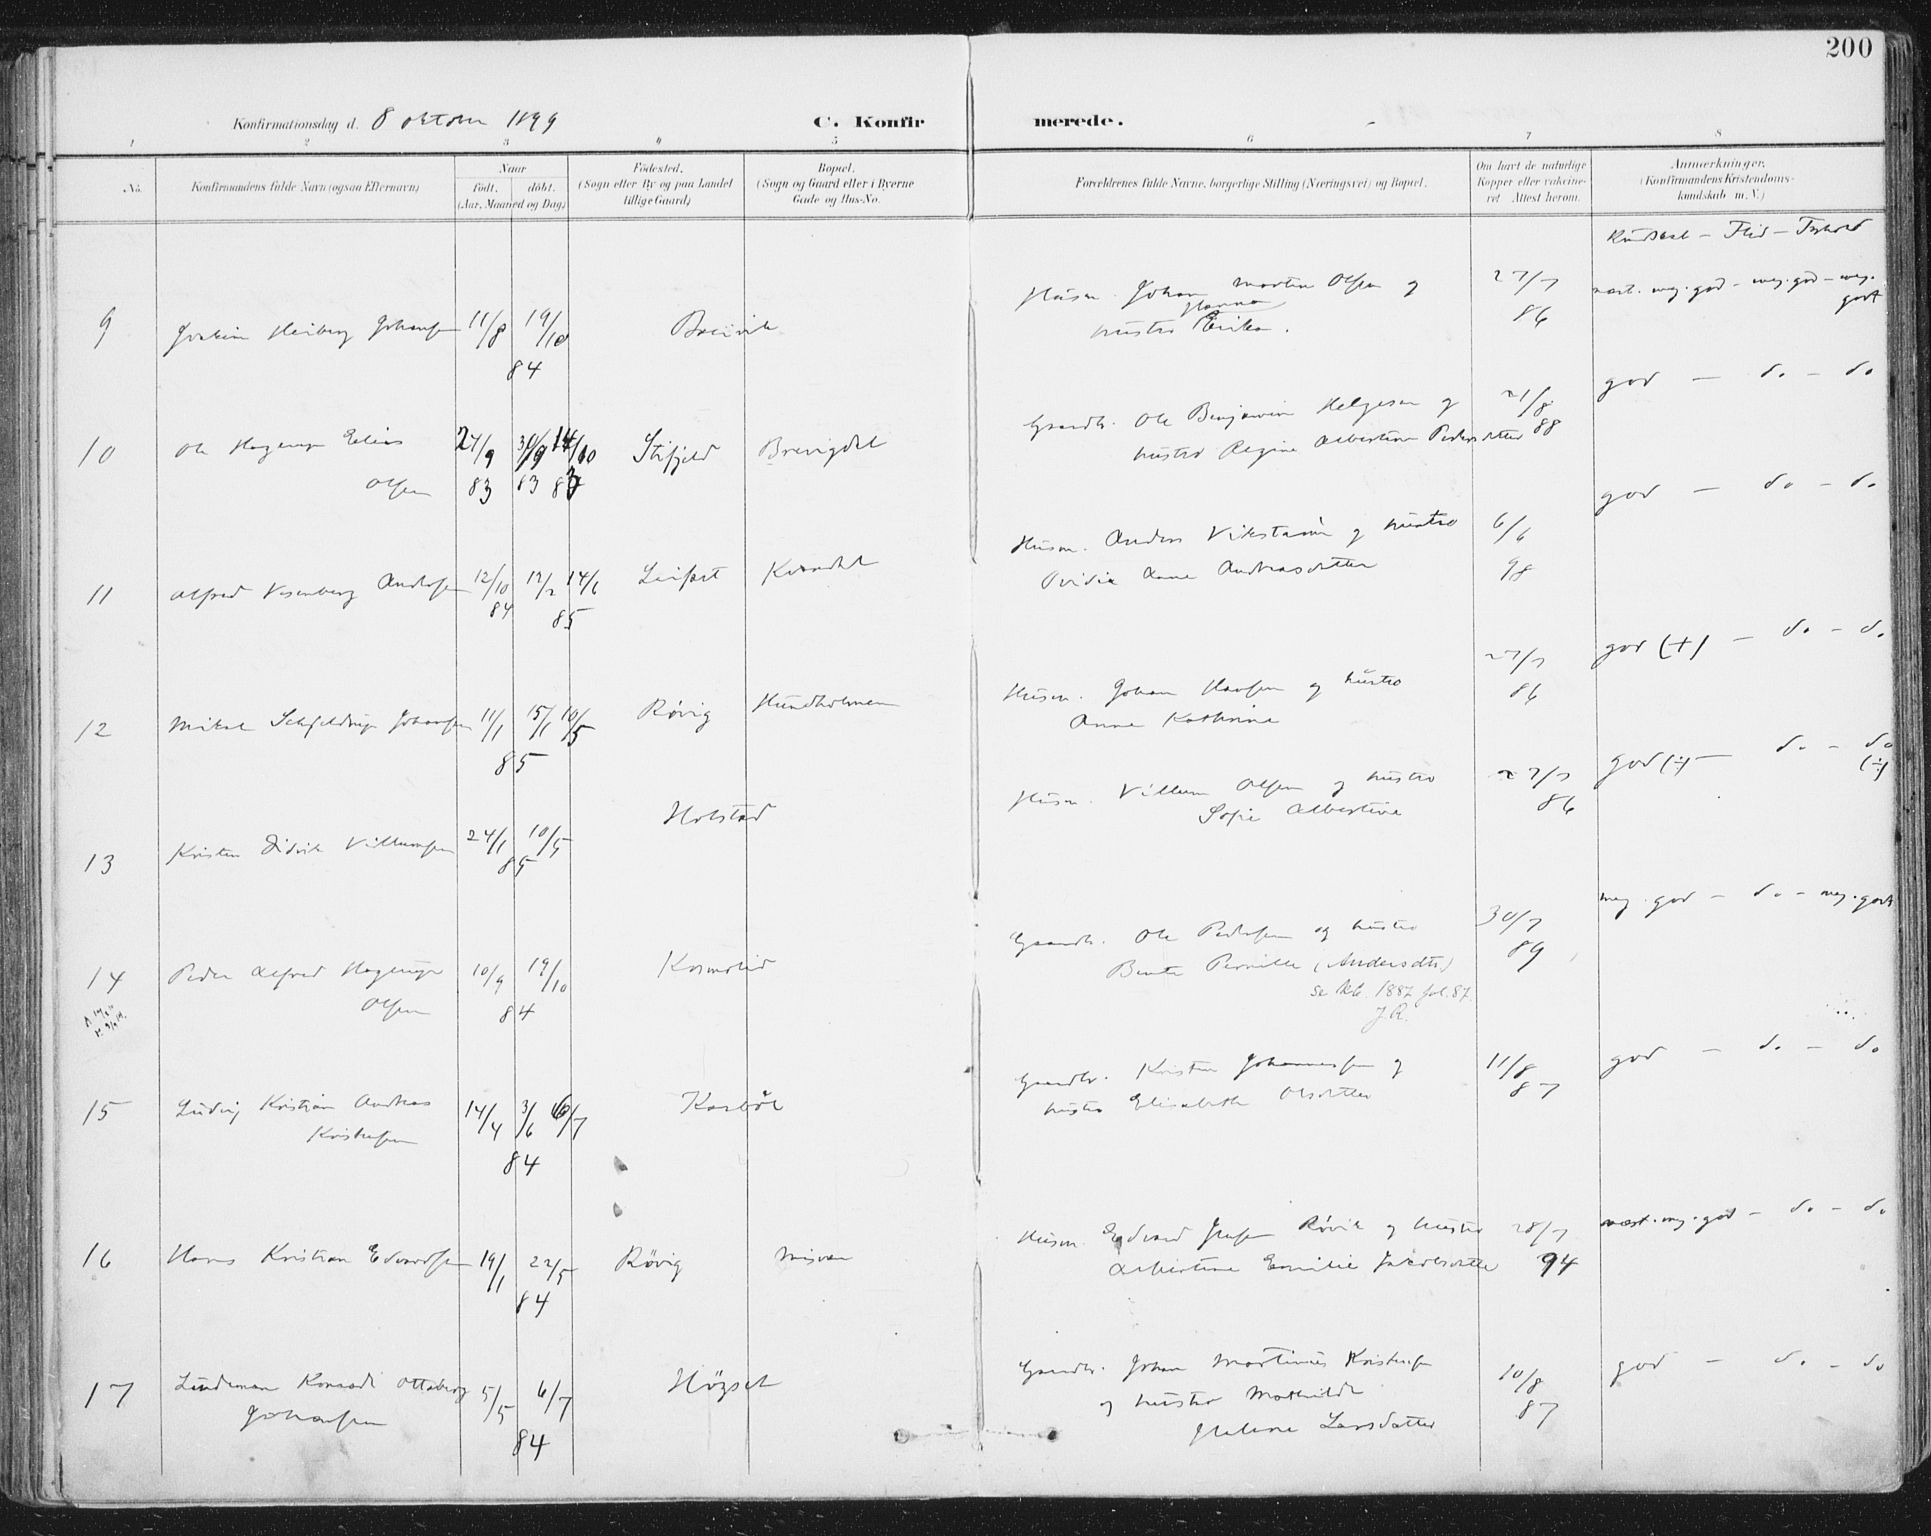 200
Konfirmationsdag d. 8 oktober 1899
C. Konfirmerede.
1 2 3 4 5 6 7 8
No.
Konfirmandens fulde Navn (ogsaa Efternavn)
Naar
født. døbt.
(Aar, Maaned og Dag)
Fødested.
(Sogn eller By og paa Landet
tillige Gaard)
Bopæl.
(Sogn og Gaard eller i Byerne
Gade og Hus-No.
Forældrenes fulde Navne, borgerlige Stilling (Næringsvei) og Bopæl.
Om havt de naturlige
Kopper eller vakcine-
ret Attest herom.
Anmærkninger.
(Konfirmandens Kristendoms-
kundskab m. V.)
Kundskab — Flid — Forhold
9 Joakim Heiberg Johansen 11/8 19/10 Breivik
84
Husm. Johan Martin Olsen og
Hanna
hustru Erika.
27/7
86
næst. meg. god - meg. god - meg.
godt
10 Ole Hagerup Elias 27/9 30/9 14/10 Stifjeld Brevigdet
Olsen 83 83 83
Gaardbr. Ole Benjamin Helgesen og
hustru Regine Albertine Pedersdatter
21/8
88
god — do - do
11 Alfred Vesenberg Andersen 12/10 12/2 14/6 Leifset Kvandal
84 85
Husm. Anders Vikstrøm og hustru
Ovidia Anne Andreasdatter
6/6
98
god — do - do
12 Mikal Schjeldrup Johansen 11/1 15/1 10/5 Røvig Hundholmen
85
Husm. Johan Hansen og hustru
Anne Kathrine
27/7
86
god (+) — do - do
13 Kristen Didrik Villumsen 24/1 10/5 Holstad
85
Husm. Villum Olsen og hustru
Sofie Albertine
27/7
86
god (÷) — do - do
(÷)
14 Peder Alfred Hagerup 10/9 19/10 Kosmolid
Olsen 84
Gaardbr. Ole Pedersen og hustru
Bente Pernille (Andersdtr)
se kb. 1887 fol. 87.
J.R.
30/7
89
meg. god — do - meg. godt
15 Ludvig Kristian Andreas 14/4 3/6 6/7 Karbøl
Kristensen 84
Gaardbr. Kristen Johannessen og
hustru Elisabeth Olsdatter
11/8
87
god — do — do
16 Hans Kristian Edvardsen 19/1 22/5 Røvig Misvær
84
Husm. Edvard Jensen Røvik og hustru
Albertine Emilie Jakobsdatter
28/7
94
næst. meg. god — do - do
17 Lindeman Konrad Ottoberg 5/5 6/7 Høgset
Johansen 84
Gaardbr. Johan Martinus Kristensen
og hustru Mathilde
Helene Larsdatter
10/8
87
god — do - do